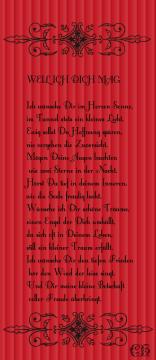 WEIL ICH DICH MAG
Ich wünsche Dir im Herzen Sonne,
im Tunnel stets ein kleines Licht.
Ewig sollst Du Hoffnung spüren,
nie vergehen die Zuversicht.
Mögen Deine Augen leuchten
wie zwei Sterne in der Nacht.
Hörst Du tief in deinem inneren,
wie die Seele freudig lacht.
Wünsche ich Dir schöne Träume,
einen Engel der Dich umhüllt,
da sich oft in Deinem Leben,
still ein kleiner Traum erfüllt.
Ich wünsche Dir den tiefen Frieden
hör den Wind der leise singt.
Und Dir meine kleine Botschaft
voller Freude überbringt.